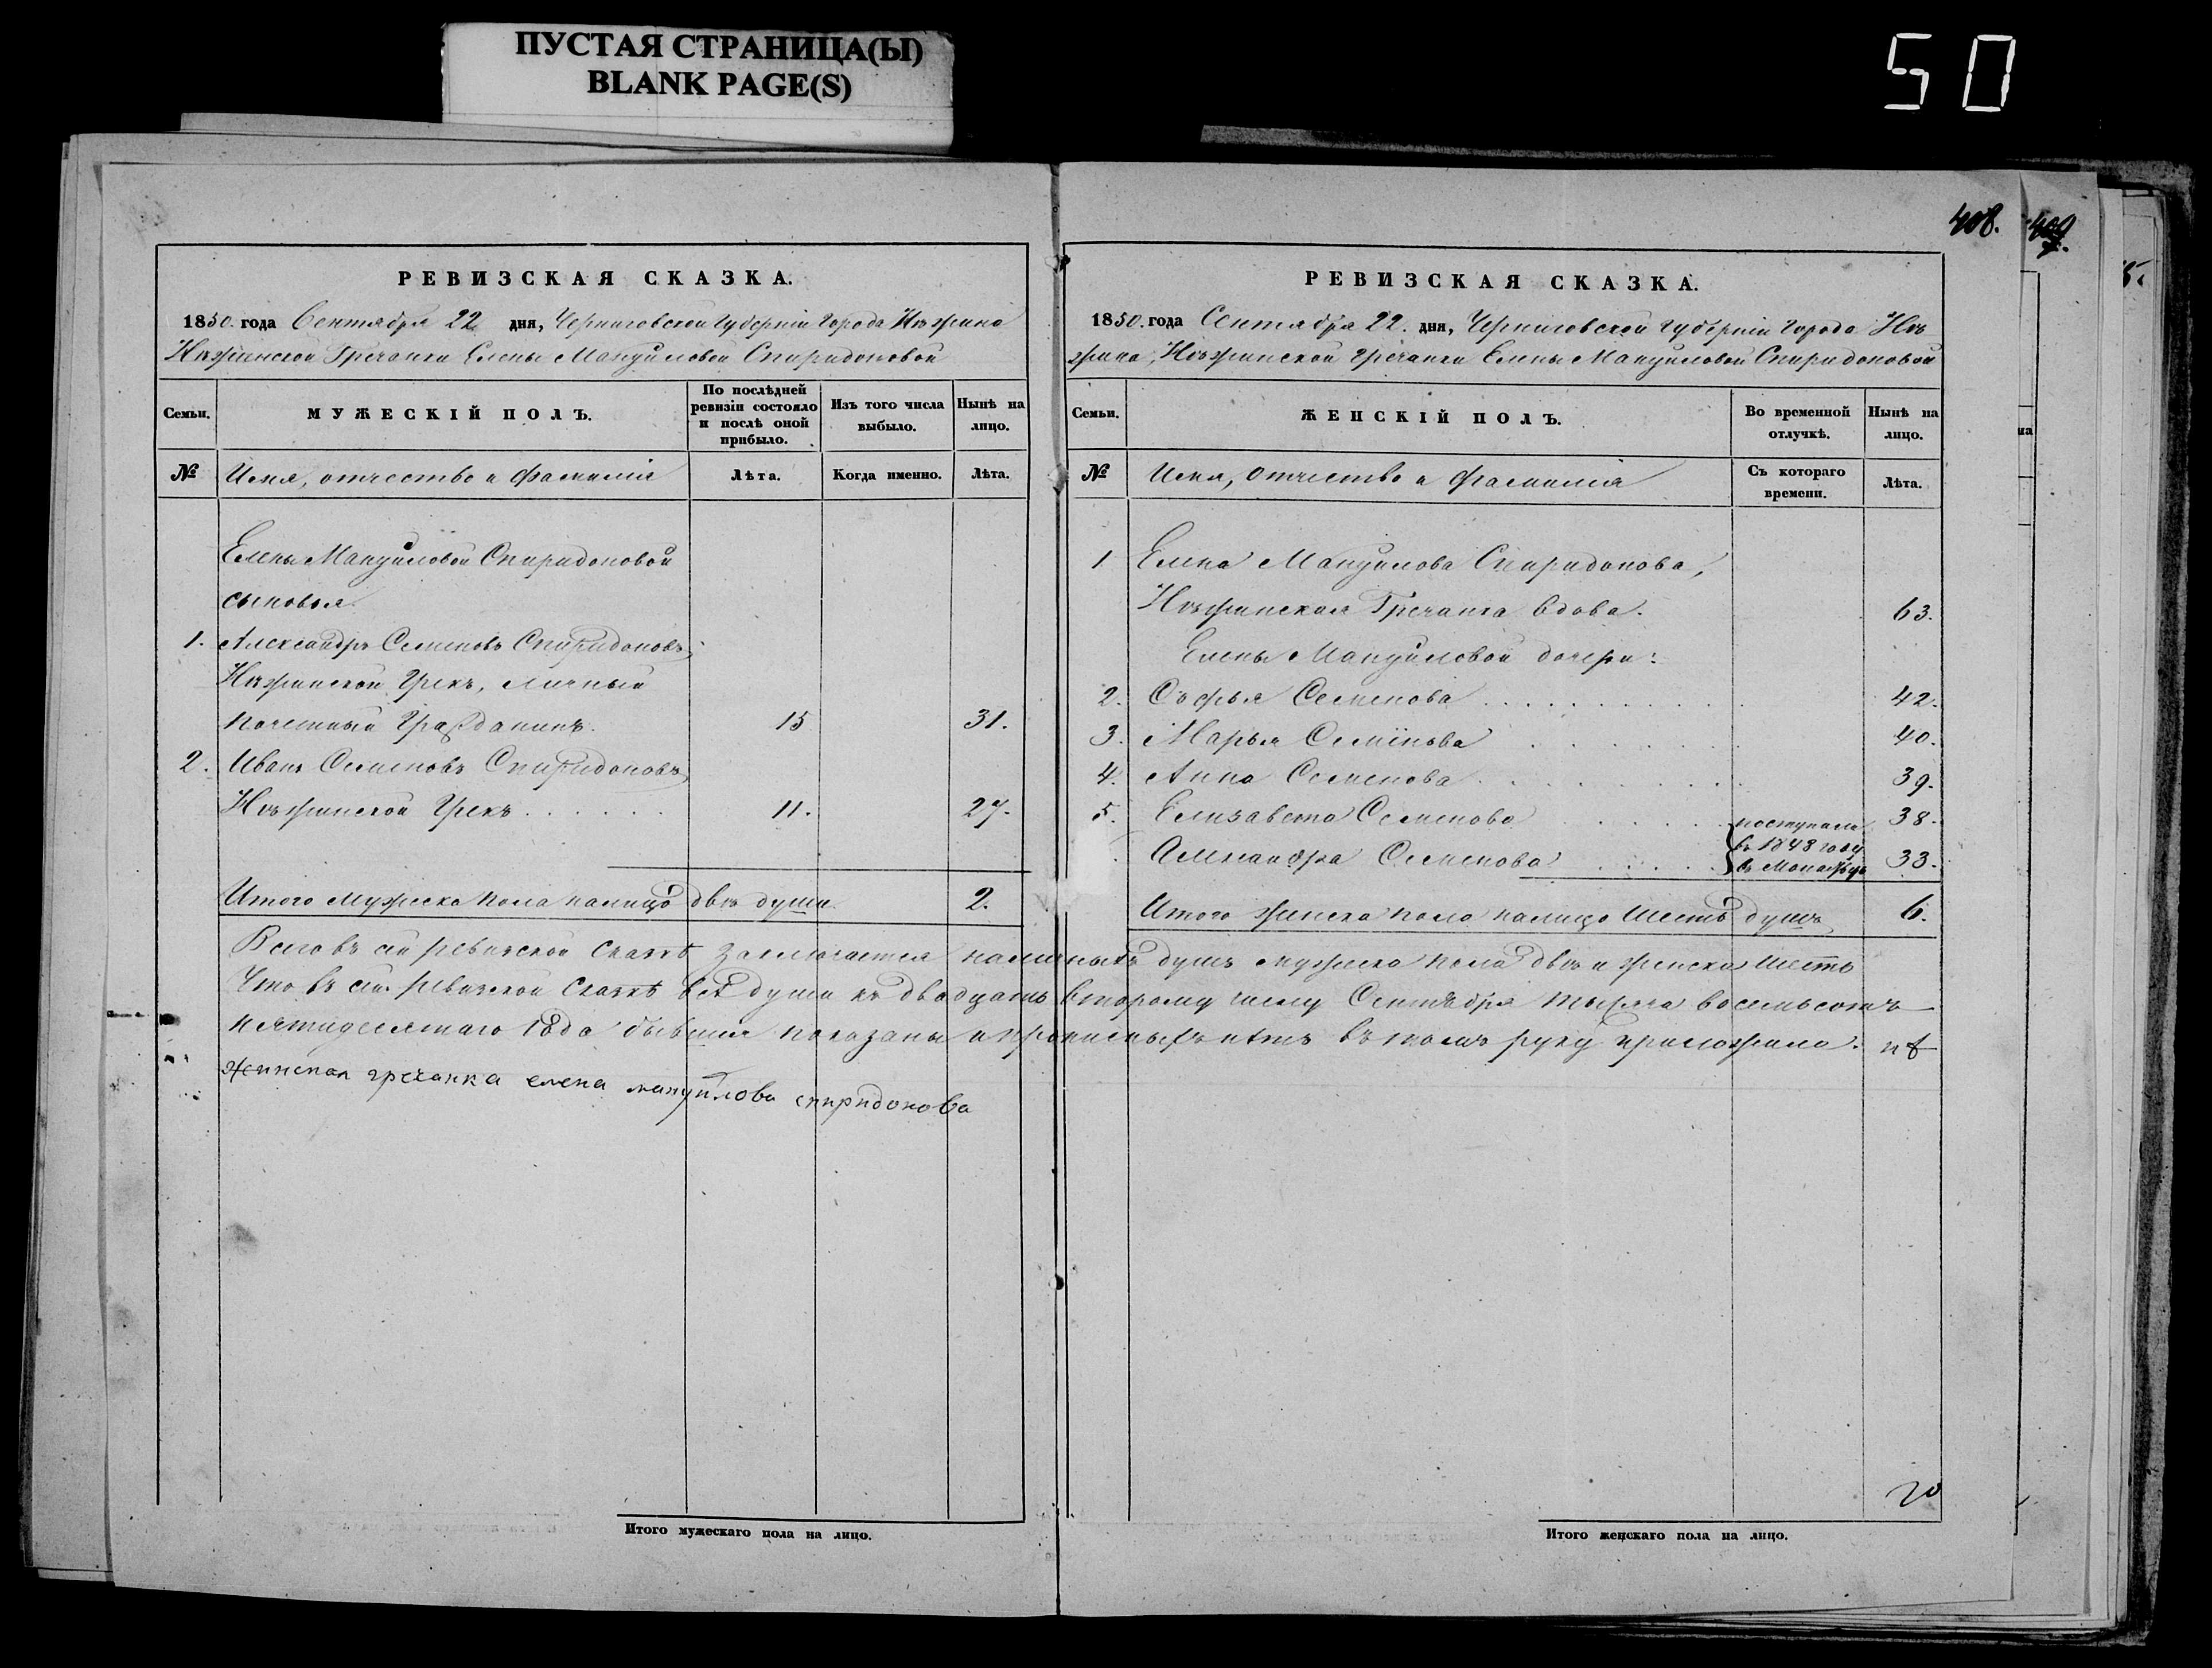 ПУСТАЯ СТРАНИЦА(Ы)
BLANK PAGE(S)
50
408.
409.
РЕВИЗСКАЯ СКАЗКА.
1850. года Сентября 22 дня, Черниговской Губерніи Города Нѣжина
Нѣжинской Гречанки Елены Мануиловой Спиридоновой
Семьи.
МУЖЕСКІЙ ПОЛЪ.
По послѣдней ревизіи состояло и послѣ оной прибыло.
Изъ того числа выбыло.
Нынѣ на лицо.
№ Имя, отчество и фамилія
Лѣта.
Когда именно.
Лѣта.
Елены Мануиловой Спиридоновой
сыновья
1. Александръ Семеновъ Спиридоновъ,
Нѣжинской Грекъ, личный
почетный Гражданинъ. 15 31.
2. Иванъ Семеновъ Спиридоновъ,
Нѣжинской Грекъ . . . . . . 11. 27.
Итого мужеска пола налицо двѣ души. 2.
РЕВИЗСКАЯ СКАЗКА.
1850. года Сентября 22. дня, Черниговской губерніи города Нѣ
жина, Нѣжинской гречанки Елены Мануиловой Спиридоновой
Семьи.
ЖЕНСКІЙ ПОЛЪ.
Во временной отлучкѣ.
Нынѣ на лицо.
№ Имя, отчество и фамилія
Съ котораго времени.
Лѣта.
1 Елена Мануилова Спиридонова,
Нѣжинская Гречанка вдова. 63.
Елены Мануиловой дочери:
2. Софья Семенова . . . . . . . . . . . 42.
3. Марья Семенова . . . . . . . . 40.
4. Анна Семенова . . . . . . . . . 39.
5. Елизавета Семенова . . . . . . 38.
Александра Семенова . . . . . поступила въ 1848 году въ Монастырь 33.
Итого женска пола налицо шесть душъ 6.
Всего въ сей ревизской сказкѣ заключается наличныхъ душъ мужеска пола двѣ и женска шесть
Что въ сей ревизской сказкѣ всѣ души къ двадцать второму числу Сентября тысяча восемьсотъ
пятидесятаго года бывшія показаны и прописныхъ нѣтъ въ томъ руку приложила. нѣ
жинская гречанка елена мануйлова спиридонова
Итого мужескаго пола на лицо.
Итого женскаго пола на лицо.